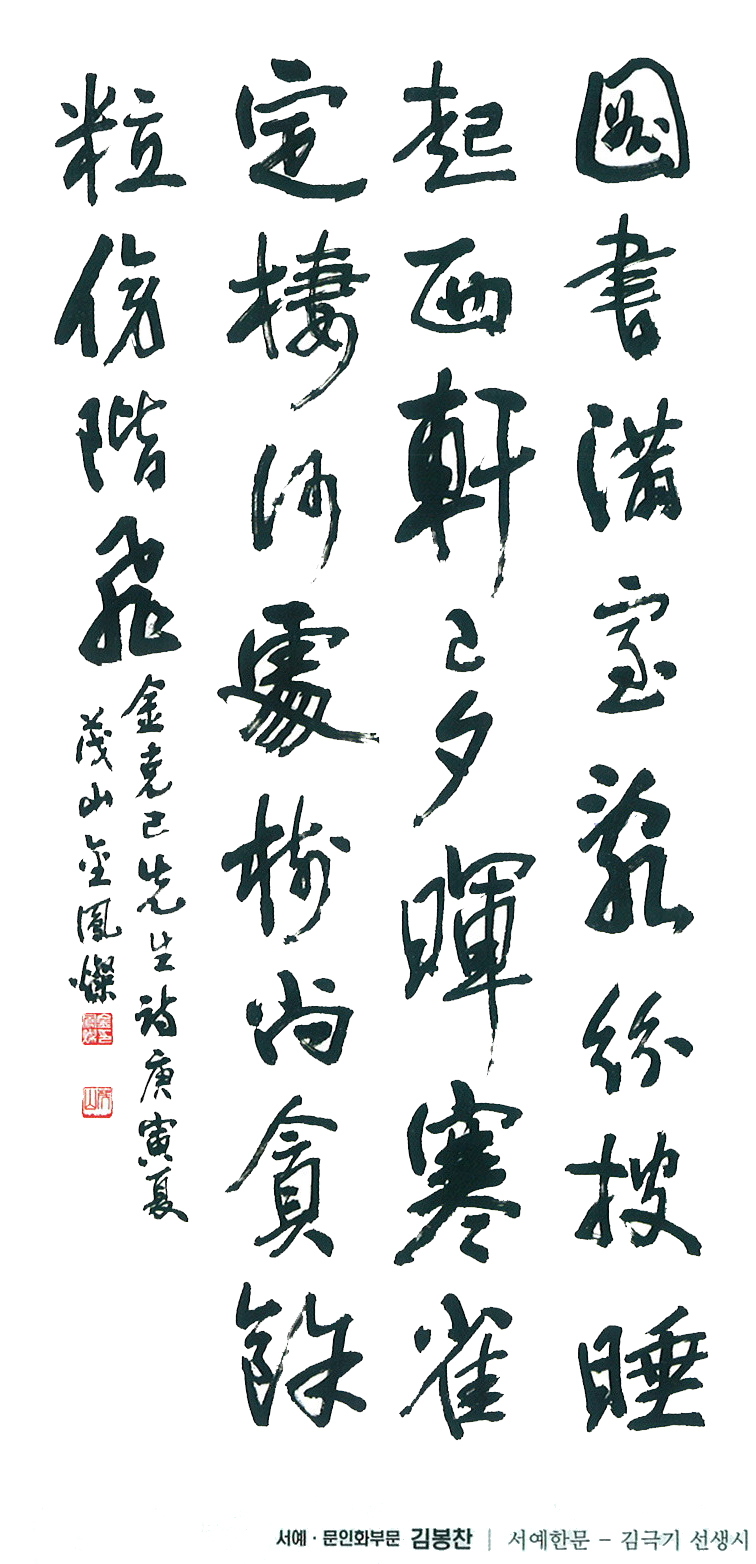 圖書滿室亂紛披睡
起西軒已夕暉寒雀
定棲何處樹尚貪餘
粒傍階飛
金克己先生詩庚寅夏
茂山金鳳燦
서예·문인화부문 김봉찬 | 서예한문 - 김극기 선생시